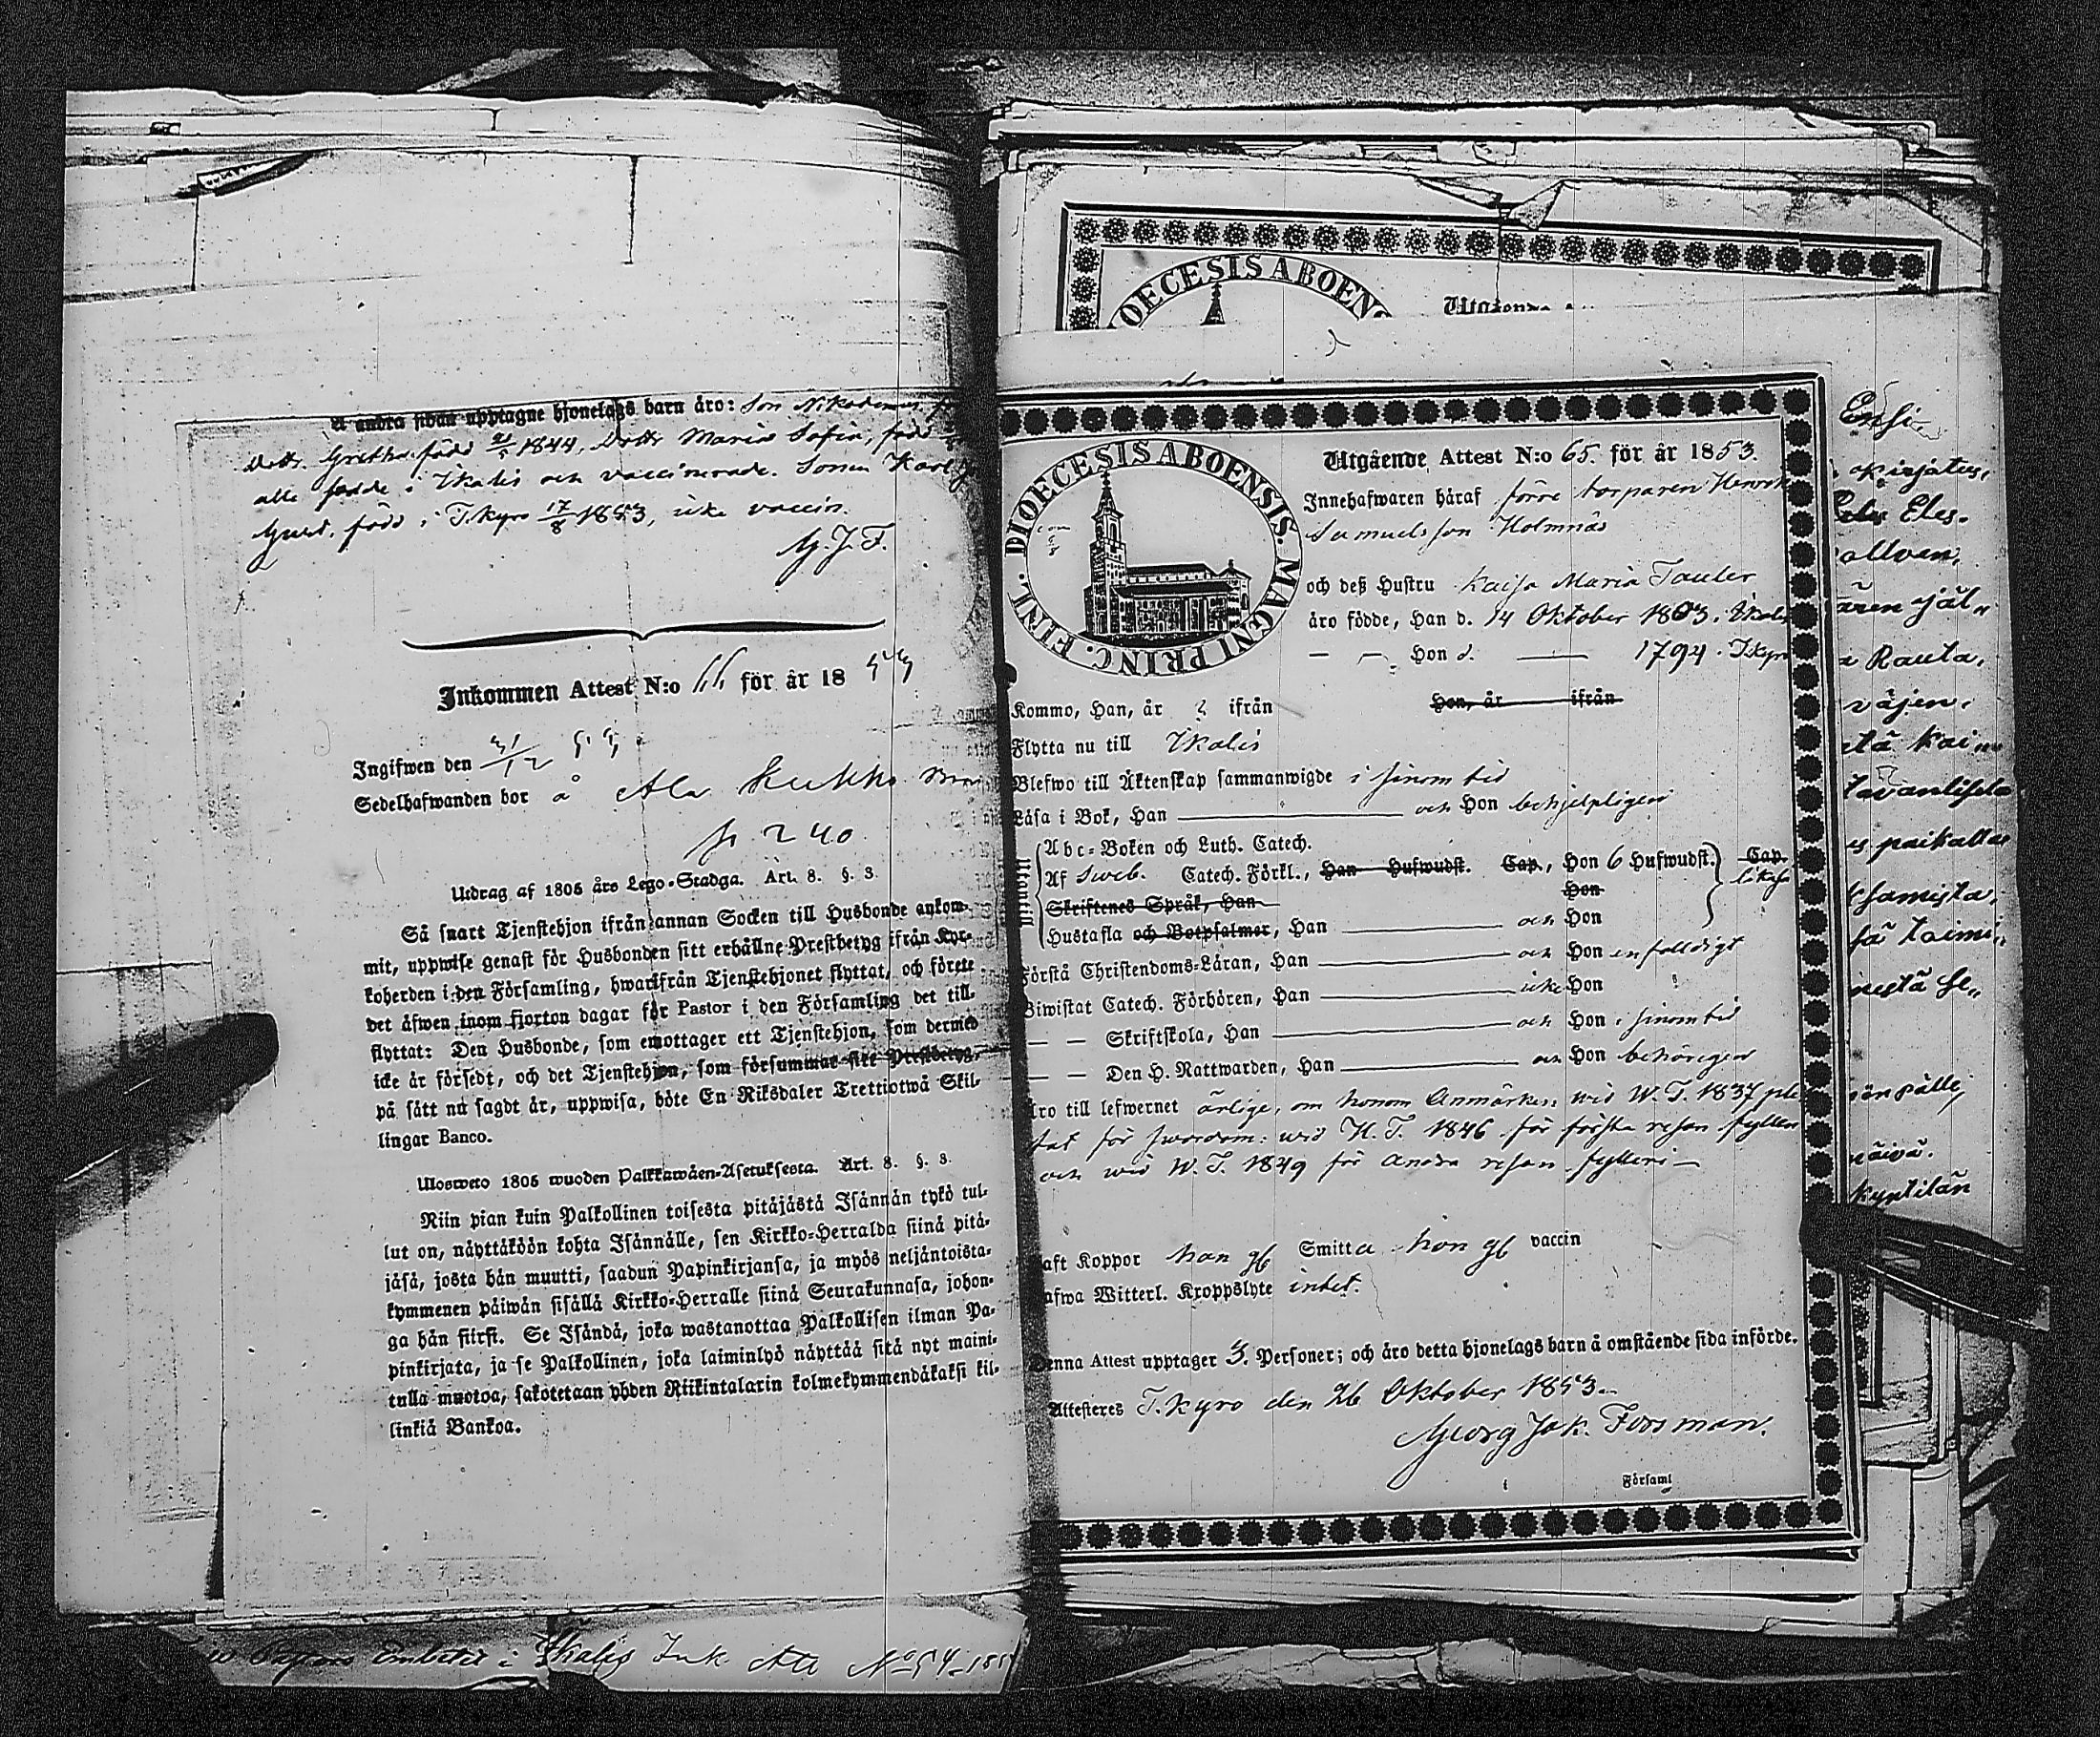 Å andra sidan upptagne hjonelags barn äro: Son Nikodemus,
Dottr. Gretha, född 1844, Dottr Maria Sofia, född
alla födde i Ikalis och vaccinerade. Sonen Karl
Gust. född i T.kyro 17/8 1853, icke vaccin.
G. J. F.
Inkommen Attest N:o 66 för år 1853
Ingifwen den 31/12 53
Sedelhafwanden bor å Ala Kukko
p. 240.
Utdrag af 1805 års Lego-Stadga. Art. 8. §. 3.
Så snart Tjenstehjon ifrån annan Socken till Husbonde ankom-
mit, uppwise genast för Husbonden sitt erhållne Prestbetyg ifrån Kyr-
koherden i den Församling, hwarifrån Tjenstehjonet flyttat, och förete
det äfwen inom fjorton dagar för Pastor i den Församling det till-
flyttat: Den Husbonde, som emottager ett Tjenstehjon, som dermed
icke är försedt, och det Tjenstehjon, som försummar sitt Prestbetyg,
på sätt nu sagdt är, uppwisa, böte En Riksdaler Trettiotwå Skil-
lingar Banco.
Ulosweto 1805 wuoden Palkkawäen-Asetuksesta. Art. 8. §. 3.
Niin pian kuin Palkollinen toisesta pitäjästä Isännän tykö tul-
lut on, näyttäköön kohta Isännälle, sen Kirkko-Herralda siinä pitä-
jäsä, josta hän muutti, saadun Papinkirjansa, ja myös neljäntoista-
kymmenen päiwän sisällä Kirkko-Herralle siinä Seurakunnasa, johon-
ga hän siirsi. Se Isändä, joka wastanottaa Palkollisen ilman Pa-
pinkirjata, ja se Palkollinen, joka laiminlyö näyttää sitä nyt maini-
tulla muotoa, sakotetaan yhden Riikintalarin kolmekymmendäkaksi kil-
linkiä Bankoa.
Pastors Embetet i Ikalis Ink. Att No 54 185
DIOECESIS ABOENS
Utgående
DIOECESIS ABOENSIS. MAGNI PRINC. FINL.
Utgående Attest N:o 65. för år 1853.
Innehafwaren häraf förre torparen Henrik
Samuelsson Holmnäs
och deß Hustru Kajsa Maria Tauler
äro födde, Han d. 14 Oktober 1803. i Ikalis
— — Hon d. —— 1794. T.kyro
Kommo, Han, år ? ifrån Hon, år ifrån
Flytta nu till Ikalis
Blefwo till Äktenskap sammanwigde i sinom tid
Läsa i Bok, Han —— och Hon behjelpligen
Utantill
Abc-Boken och Luth. Catech.
Af Sweb. Catech. Förkl., Han Hufwudst. Cap., Hon 6 Hufwudst. Cap.
likaså
Skriftenes Språk, Han Hon
Hustafla och Botpsalmer, Han —— och Hon
Förstå Christendoms-Läran, Han —— och Hon enfalldigt
Biwistat Catech. Förhören, Han —— icke Hon
— — Skriftskola, Han —— och Hon i sinom tid
— — Den H. Nattwarden, Han —— och Hon behörigen
Äro till lefwernet ärlige, om honom anmärkes: wid W. T. 1837 pli
tat för swordom: wid H. T. 1846 för första resan fylleri
och wid W. T. 1849 för andra resan fylleri —
Haft Koppor han gb Smitta hon gb vaccin
Hafwa Witterl. Kroppslyte intet.
Denna Attest upptager Personer; och äro detta hjonelags barn å omstående sida införde.
Attesteres T.kyro den 26 Oktober 1853.
Georg Jak. Forsman.
i Församl
Ensi
kirjatus,
Eles.
ollvan,
ären jäl
Rauta,
väjen,
tä kai
es paikallas
hamista,
toimi
nestä se
än pälle,
näivä.
kyntilän